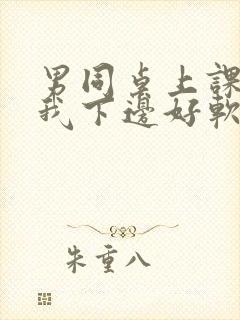 男同桌上課
我下邊好軟
朱重八